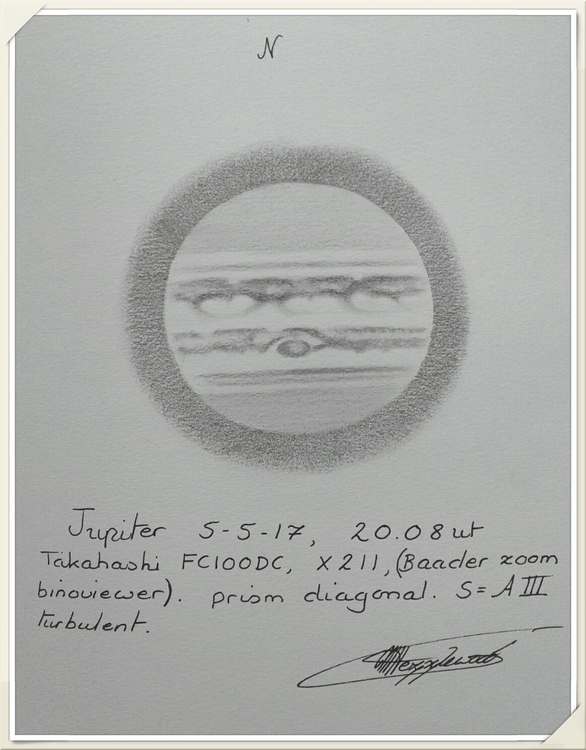 N
Jupiter 5-5-17, 20.08 ut
Takahashi FC100DC, X211, (Baader zoom
binoviewer). prism diagonal. S= A III
turbulent.